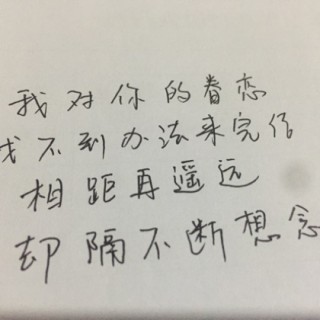 我对你的眷恋
找不到办法来完结
相距再遥远
却隔不断想念